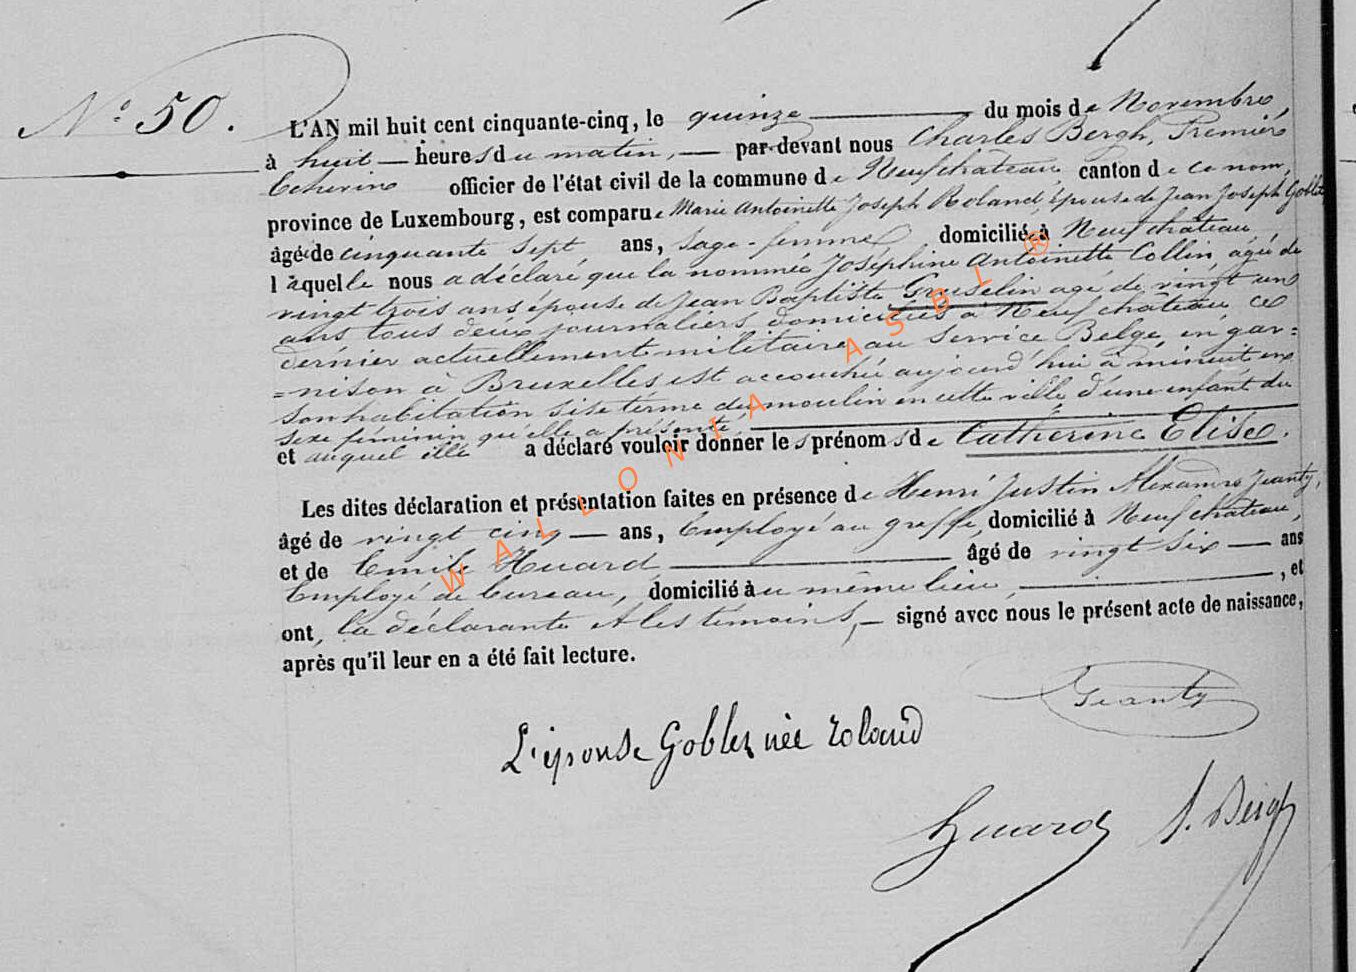 N° 50.
L'AN mil huit cent cinquante-cinq, le quinze du mois de Novembre,
à huit heures du matin, par-devant nous Charles Bergh, Premier
Echevin officier de l'état civil de la commune de Neufchateau, canton de ce nom,
province de Luxembourg, est comparue Marie Antoinette Joseph Roland, épouse de Jean Joseph Goblet
âgée de cinquante sept ans, sage-femme domiciliée à Neufchâteau
laquelle nous a déclaré que la nommée Joséphine Antoinette Collin, agée de
vingt trois ans épouse de Jean Baptiste Gruselin agé de vingt un
ans tous deux journaliers domiciliés à Neufchateau, ce
dernier actuellement militaire au Service Belge en gar=
=nison à Bruxelles est accouchée aujourd'hui à minuit en
son habitation sise terme du moulin en cette ville d'une enfant du
sexe féminin qu'elle a présenté,
et auquel elle a déclaré vouloir donner les prénoms de Catherine Elise.
Les dites déclaration et présentation faites en présence de Henri Justin Alexandre Jeanty,
âgé de vingt cinq ans, Employé au greffe, domicilié à Neufchateau,
et de Emile Huard âgé de vingt six ans
Employé de bureau, domicilié au même lieu, , et
ont, la déclarante et les témoins, signé avec nous le présent acte de naissance,
après qu'il leur en a été fait lecture.
Jeanty
L'épouse Goblet née roland
Huard
WALLONIA ASBL ®